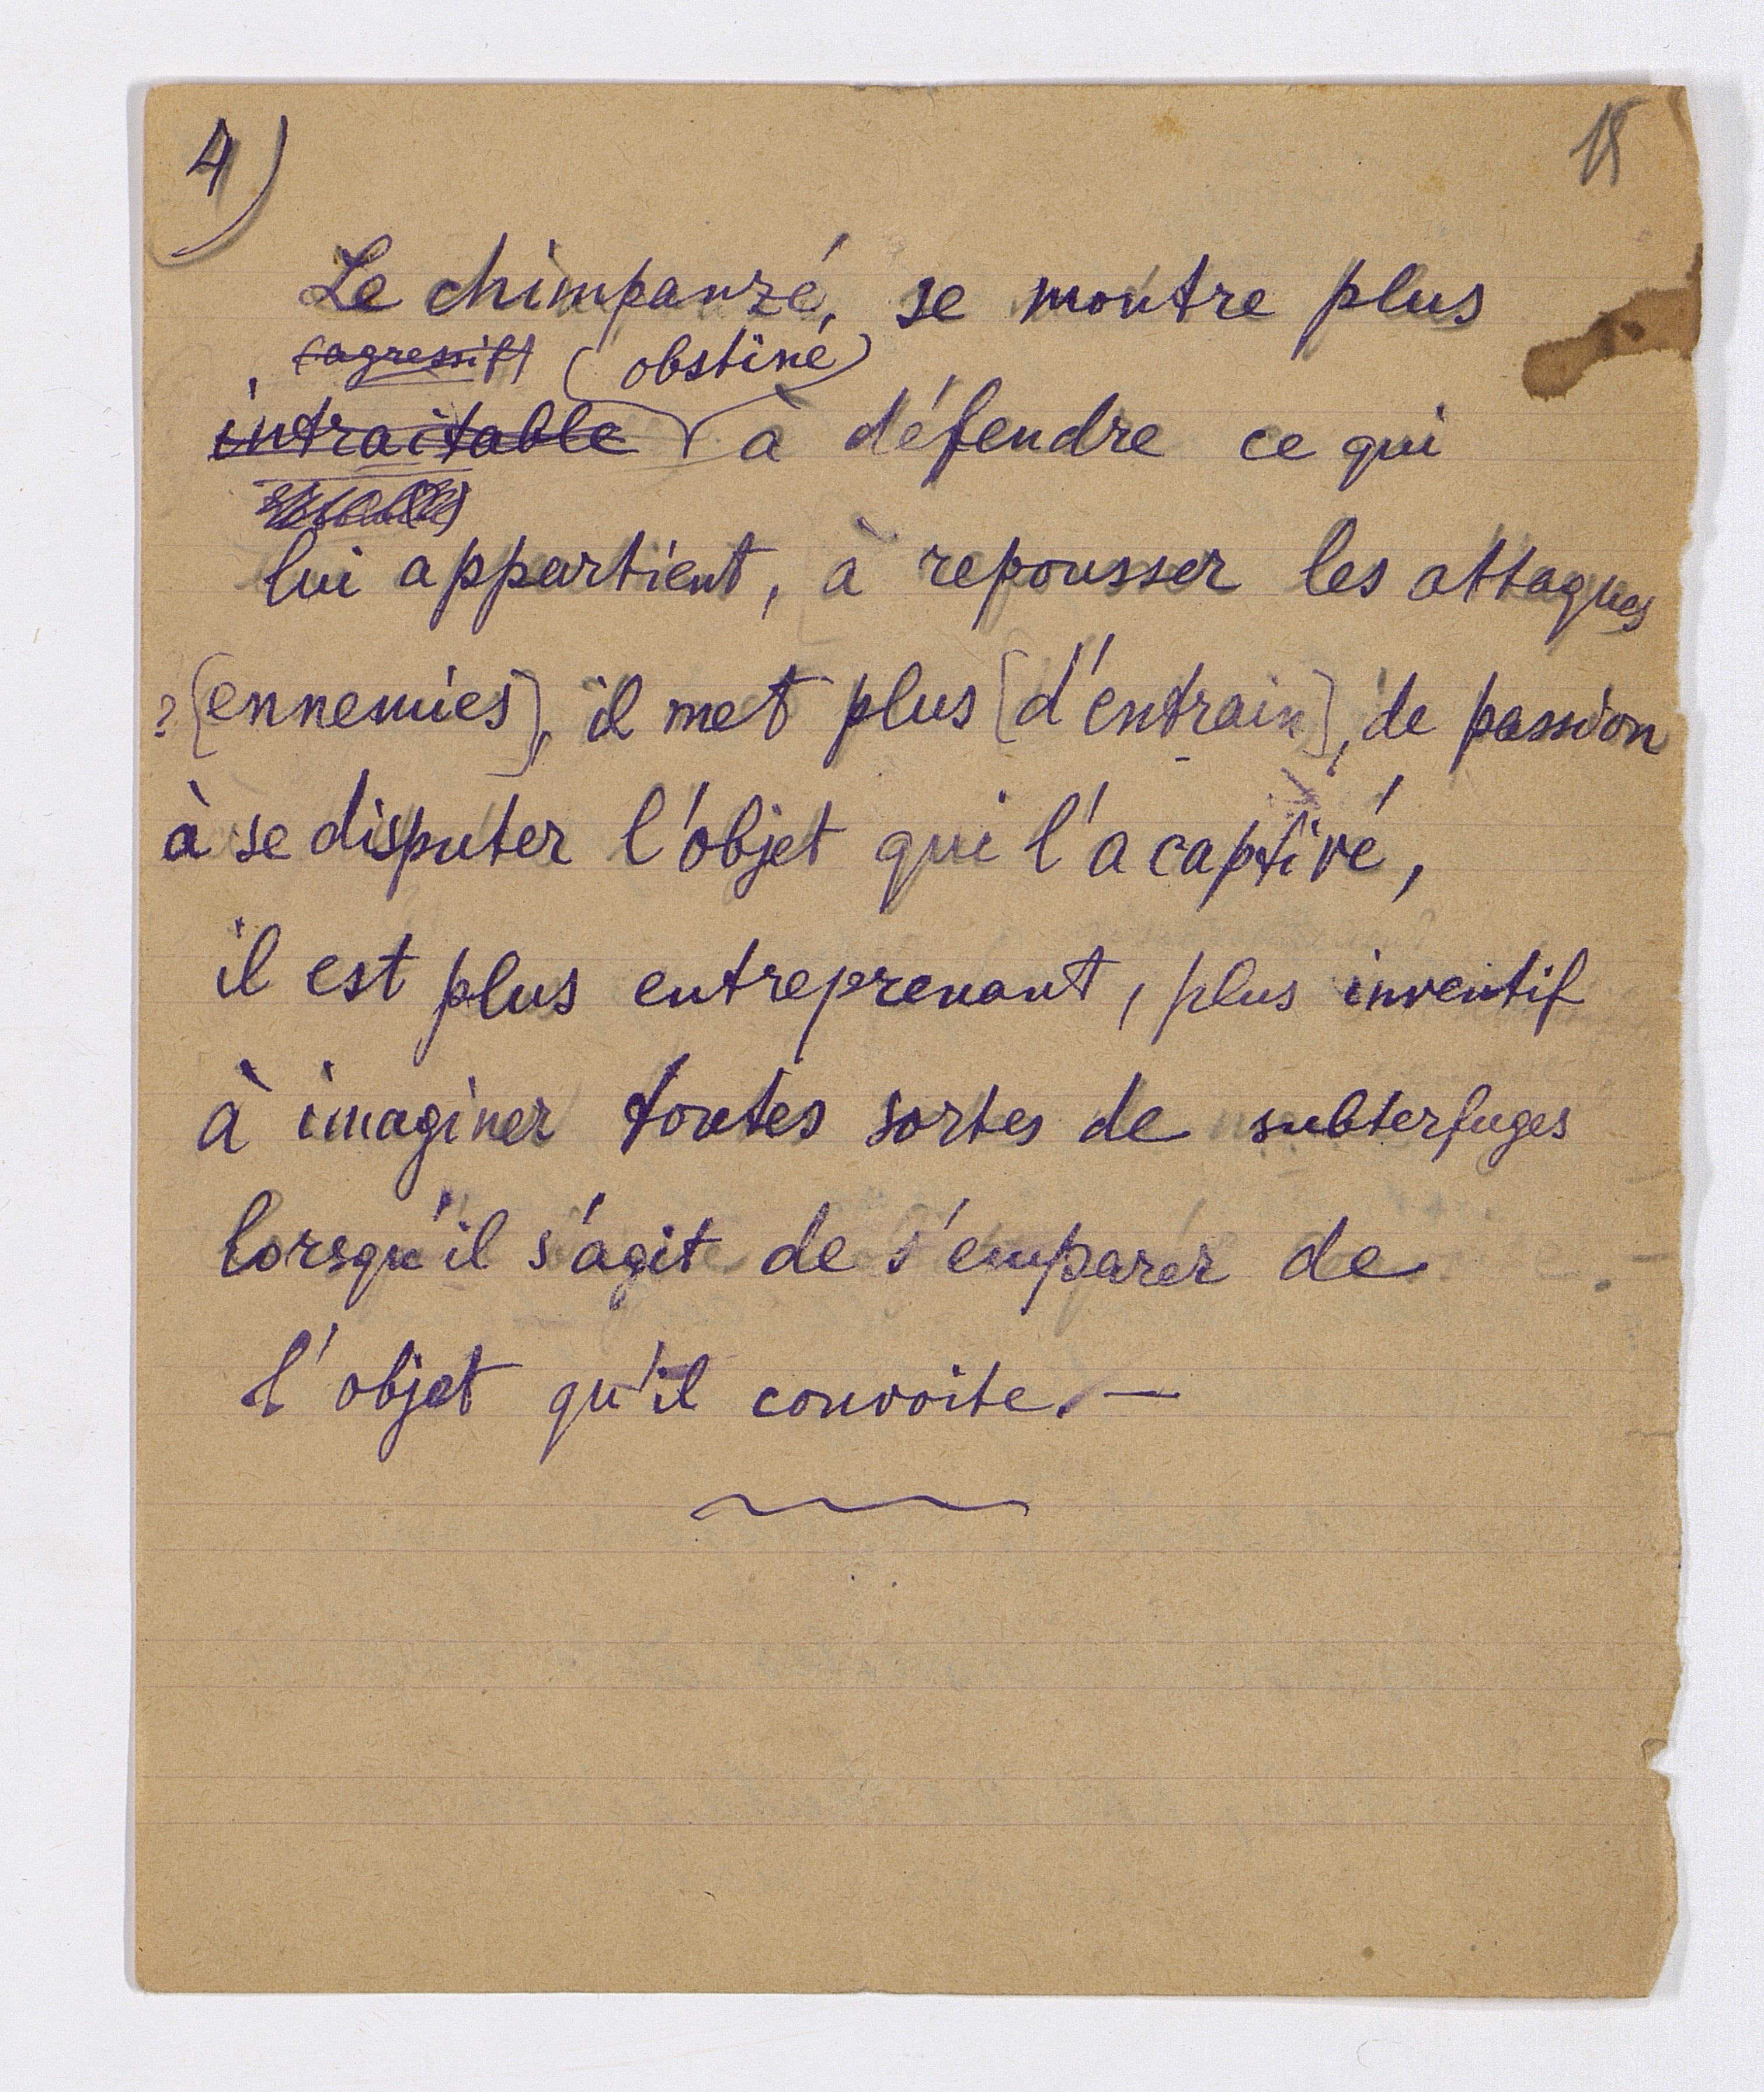 4)
Le chimpanzé, se montre plus
(agressif) (obstiné)
intraitable à défendre ce qui
lui appartient, à repousser les attaques
? [ennemies], il met plus [d'entrain], de passion
à se disputer l'objet qui l'a captivé,
il est plus entreprenant, plus inventif
à imaginer toutes sortes de subterfuges
lorsqu'il s'agit de s'emparer de
l'objet qu'il convoite. —